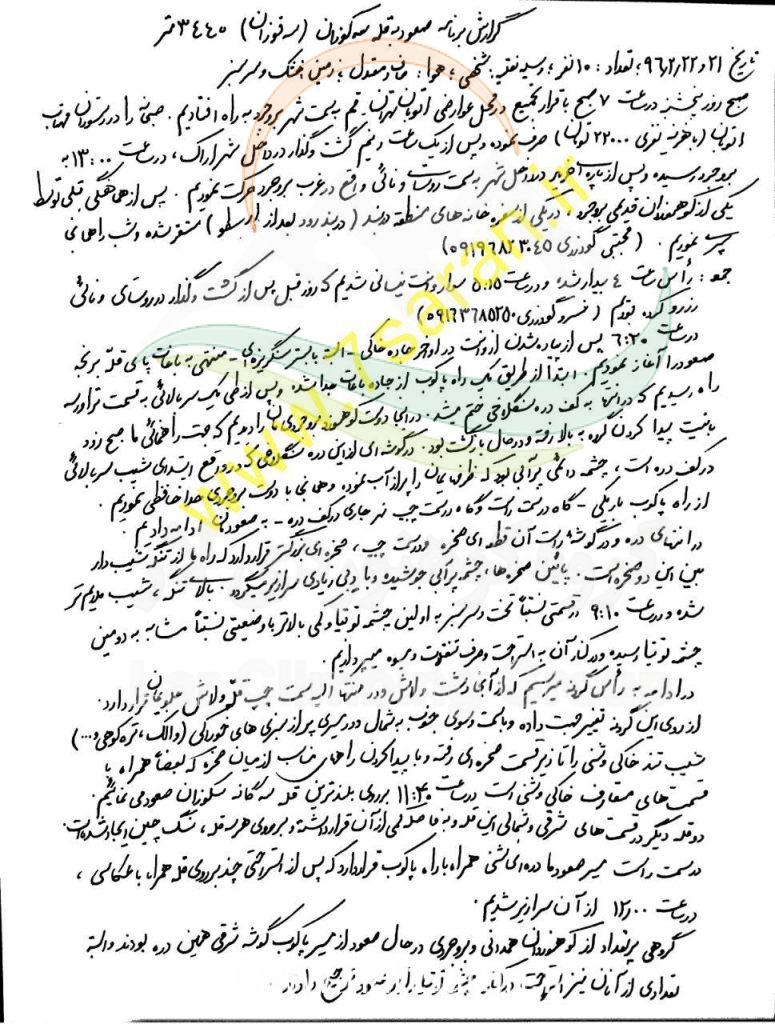 گزارش برنامه صعود به قله سه کوزان (سه قوزان) ۳۴۴۰ متر
تاریخ ۲۱ و ۹۶,۲,۲۲ ؛ تعداد: ۱۰ نفر ؛ وسیله نقلیه شخصی ؛ هوا: صاف و معتدل ؛ زمین خشک و سرسبز
صبح روز پنجشنبه در ساعت ۷ صبح با قرار تجمع در محل عوارضی اتوبان تهران قم به سمت شهر بروجرد به راه افتادیم. صبحانه را در رستوران مهتاب
اتوبان (با هزینه نفری ۲۲۰۰۰ تومان) صرف نموده و پس از یک ساعت و نیم گشت و گذار در داخل شهر اراک، در ساعت ۱۳:۰۰ به
بروجرد رسیده و پس از در داخل شهر به سمت روستای ونائی واقع در غرب بروجرد حرکت نمودیم. پس از هماهنگی قبلی توسط
یکی از کوهنوردان قدیمی بروجرد، در یکی از سفره خانه های منطقه دربند (دربند رود بعد از ارسطو) مستقر شده و شب را همانجا
سپری نمودیم. (مجتبی گودرزی ۰۹۱۹۶۸۲۳۰۴۵)
جمعه: رأس ساعت ۴ بیدار شده و در ساعت ۵:۱۵ سوار وانت نیسانی شدیم که روز قبل پس از گشت و گذار در روستای ونائی
رزرو کرده بودیم (خسرو گودرزی ۰۹۱۶۳۶۸۵۲۵۰)
در ساعت ۶:۲۰ پس از پیاده شدن از وانت در اواخر جاده خاکی - البته با بستر سنگریزه ای - منتهی به باغات پای قله برنجه
صعود را آغاز نمودیم. ابتدا از طریق یک راه پاکوب از جاده باغات جدا شده و پس از طی یک سربالائی به قسمت تراورسه
راه رسیدیم که در انتها به کف دره سنگلاخی ختم میشد. در اینجا دوست کوهنورد بروجردی مان را دیدیم که جهت راهنمائی ما صبح زود
بابت پیدا کردن گروه به بالا رفته و در حال بازگشت بود. در گوشه ای از این دره سنگلاخی که در واقع ابتدای شیب سربالائی
در کف دره است، چشمه دائمی پرآبی بود که ظروف مان را پر از آب نموده و همانجا با دوست بروجردی خداحافظی نمودیم.
از راه پاکوب باریکی - گاه در سمت راست و گاه در سمت چپ نهر جاری در کف دره - به صعودمان ادامه دادیم.
در انتهای دره و در گوشه راست آن قطعه ای صخره و در سمت چپ، صخره ای بزرگتر قرار دارد که راه ما از تنگه شیب دار
بین این دو صخره است. پائین صخره ها، چشمه پرآبی جوشیده و با دبی زیادی سرازیر میگردد. بالای تنگه، شیب ملایم تر
شده و در ساعت ۹:۱۰ در قسمتی نسبتاً تخت و سرسبز به اولین چشمه توتیا و کمی بالاتر با وضعیتی نسبتاً مشابه به دومین
چشمه توتیا رسیده و در کنار آن به استراحت و صرف تنقلات و میوه میپردازیم.
در ادامه به رأس گردنه میرسیم که از آنجا دشت ولاش و در منتها الیه سمت چپ قله ولاش جلویمان قرار دارد.
از روی این گردنه تغییر جهت داده و با سمت و سوی جنوب به شمال در مسیری پر از سبزی های خوراکی (والک، تره کوهی و ...)
شیب تند خاکی و شنی را تا زیر قسمت صخره ای رفته و با پیدا کردن راههای مناسب از میان صخره که بعضاً همراه با
قسمت های متعارف خاکی و شنی است در ساعت ۱۱:۴۰ بر روی بلندترین قله سه گانه سکوزان صعود می نمائیم.
دو قله دیگر در قسمت های شرقی و شمالی این قله و به فاصله کمی از آن قرار داشته و بر روی هر سه قله، سنگ چین ایجاد شده است.
در سمت راست مسیر صعود ما دره ای شنی همراه با راه پاکوب قرار دارد که پس از استراحتی چند بر روی قله همراه با عکاسی،
در ساعت ۱۲,۰۰ از آن سرازیر شدیم.
گروهی پرتعداد از کوهنوردان همدانی و بروجردی در حال صعود از مسیر پاکوب گوشه شرقی همین دره بودند و البته
تعدادی از آنان نیز استراحت در کنار چشمه توتیا را بر صعود ترجیح دادند.
www.7saran.ir